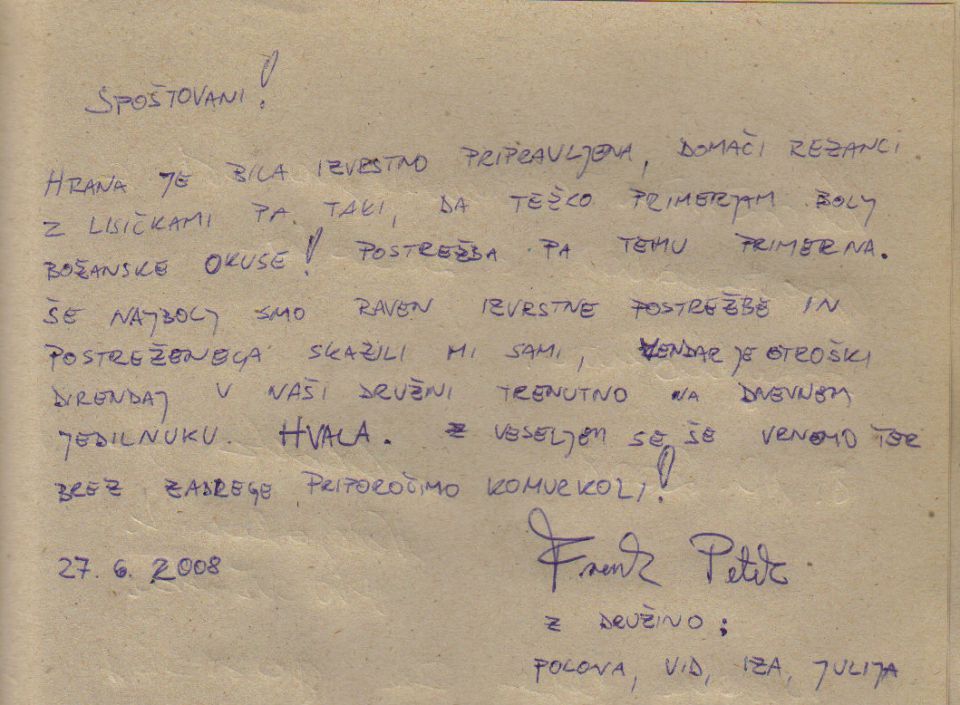 SPOŠTOVANI!
HRANA JE BILA IZVRSTNO PRIPRAVLJENA, DOMAČI REZANCI
Z LISIČKAMI PA TAKI, DA TEŽKO PRIMERJAM BOLJ
BOŽANSKE OKUSE! POSTREŽBA PA TEMU PRIMERNA.
ŠE NAJBOLJ SMO RAVEN IZVRSTNE POSTREŽBE IN
POSTREŽENEGA SKAZILI MI SAMI, VENDAR JE OTROŠKI
DIRENDAJ V NAŠI DRUŽINI TRENUTNO NA DNEVNEM
JEDILNUKU. HVALA. Z VESELJEM SE ŠE VRNEMO TER
BREZ ZADREGE PRIPOROČIMO KOMURKOLI!
27. 6. 2008
Petek
Z DRUŽINO:
POLONA, VID, IZA, JULIJA